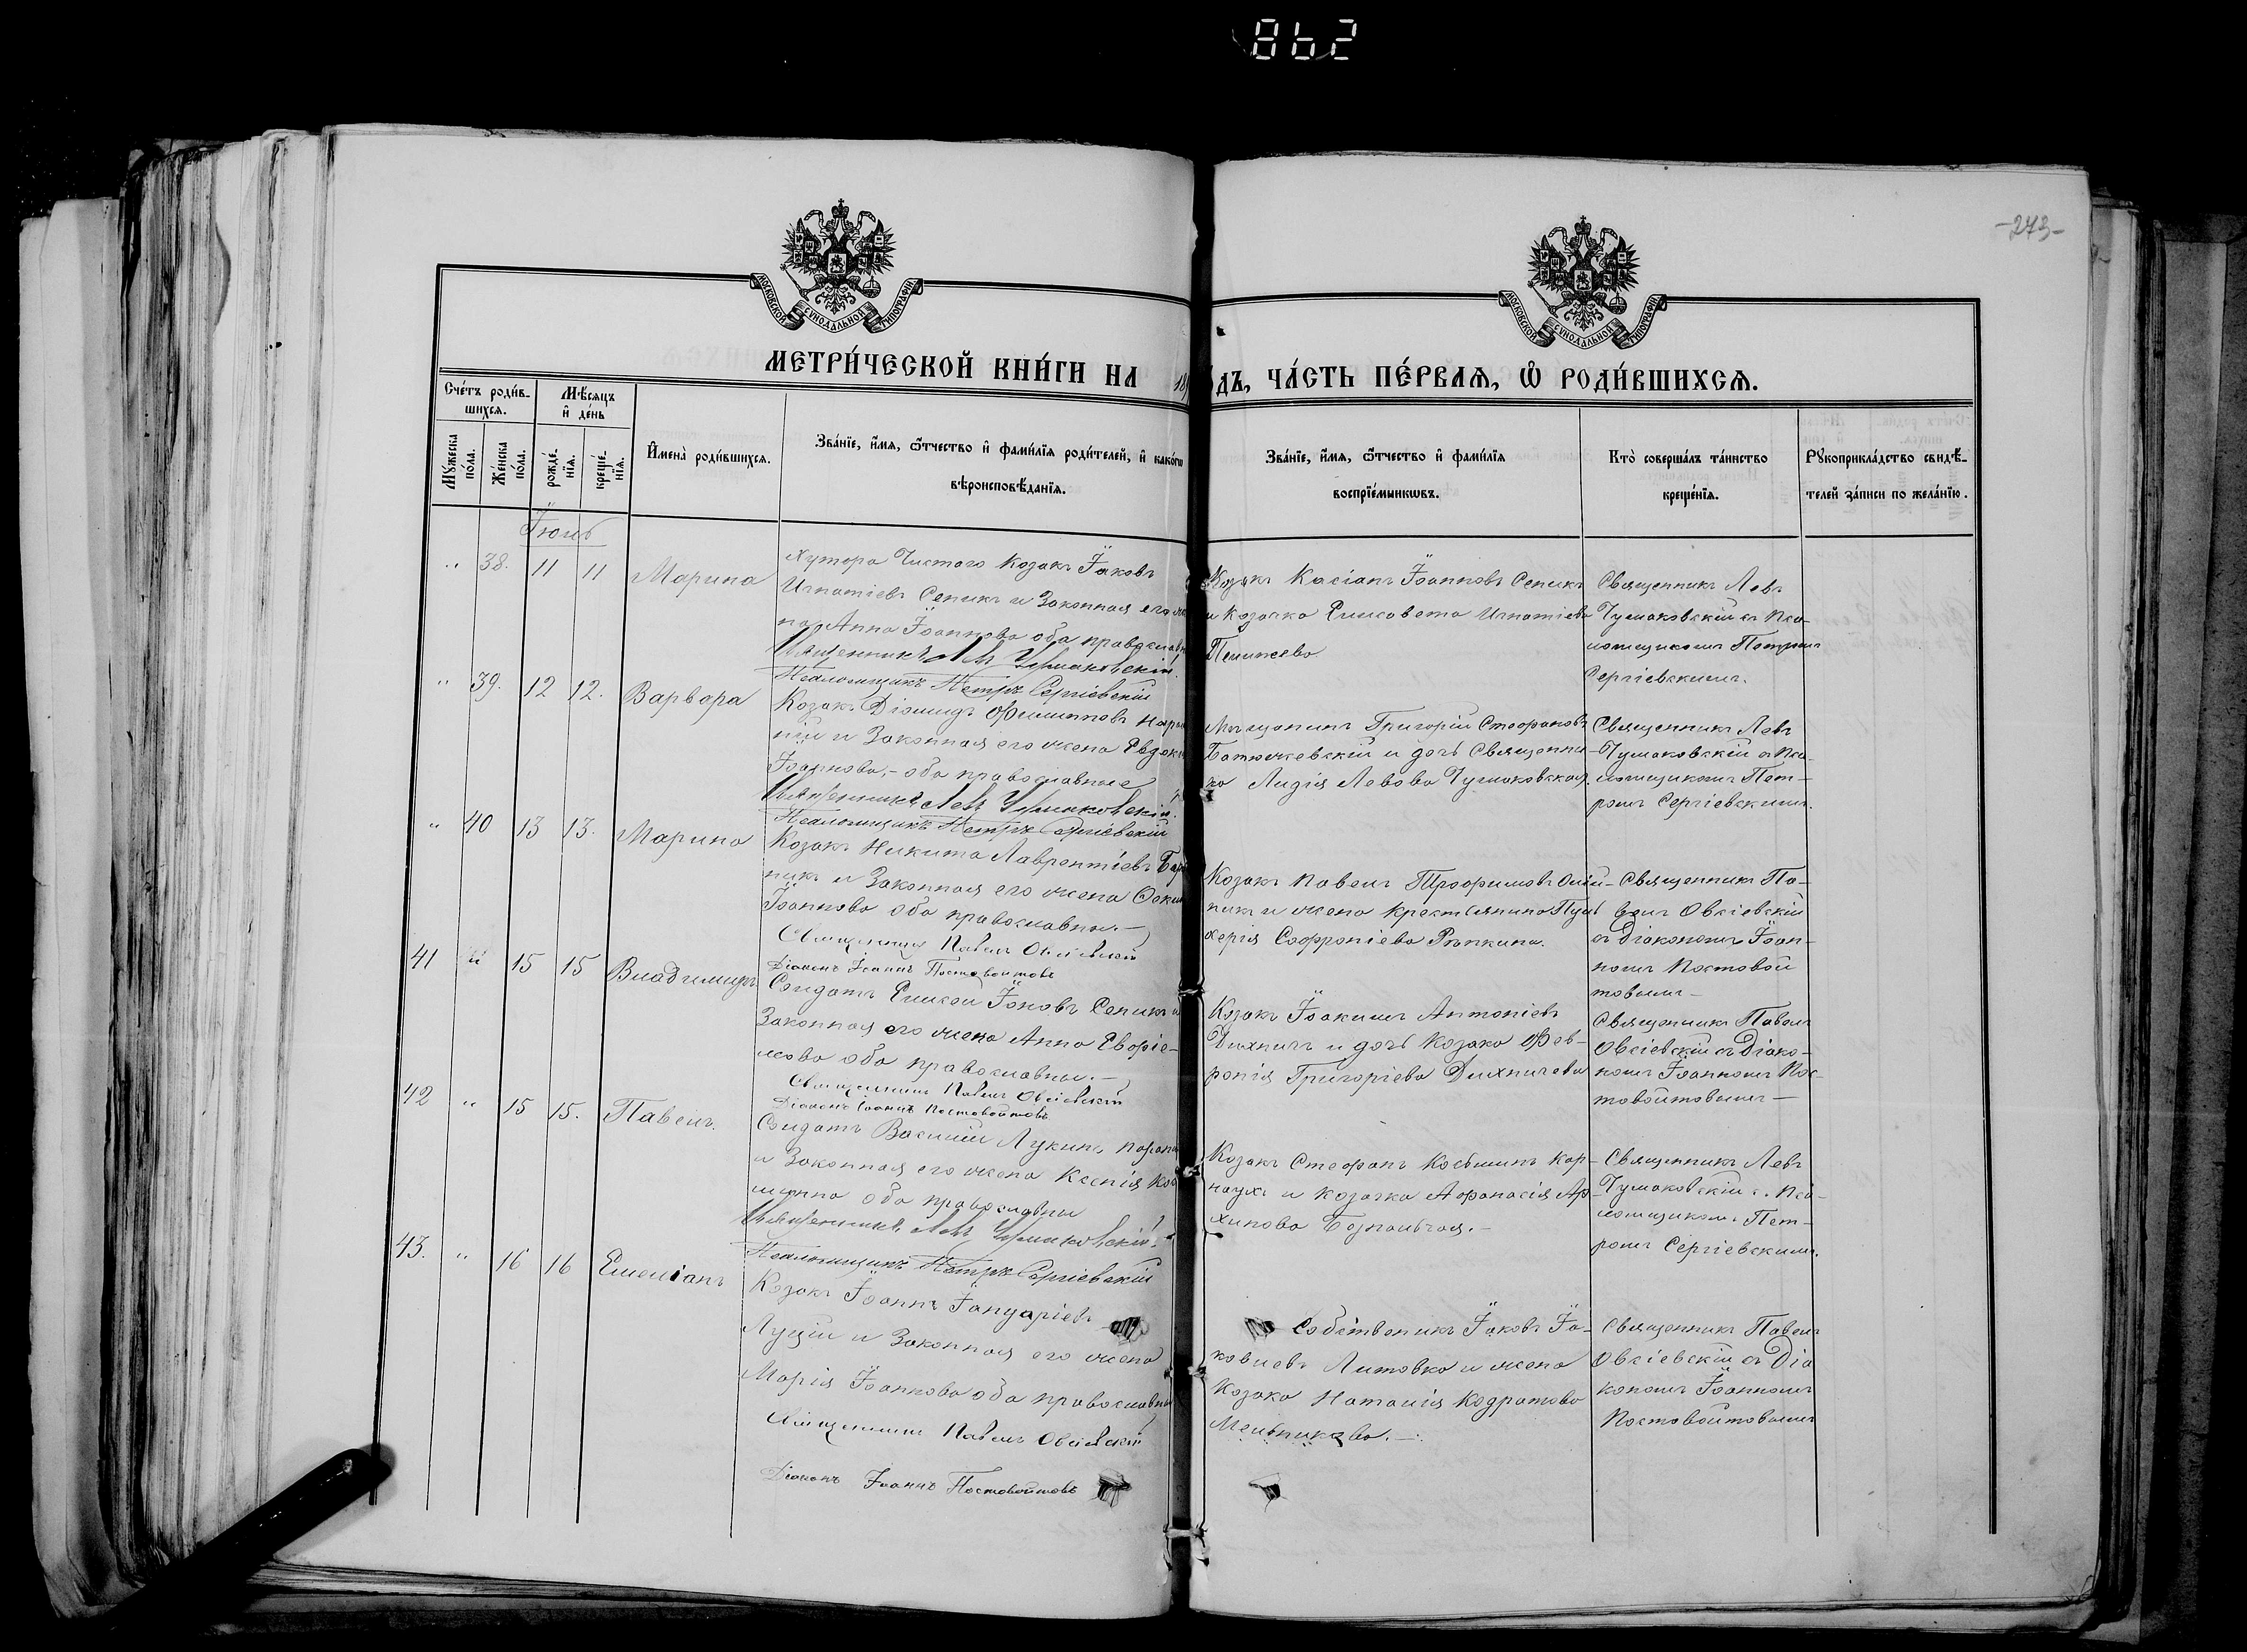 862
-273-
МОСКОВСКОЙ СУНОДАЛЬНОЙ ТИПОГРАФІИ
МОСКОВСКОЙ СУНОДАЛЬНОЙ ТИПОГРАФІИ
МЕТРИ́ЧЕСКОЙ КНИ́ГИ НА 18
ДЪ, ЧА́СТЬ ПЕ́РВАѦ, Ѡ РОДИ́ВШИХСѦ.
Сче́тъ роди́в-
шихсѧ.
Мѣ́сѧцъ
и҆ де́нь
Мꙋ́жеска
по́ла.
Же́нска
по́ла.
рожде́-
нїѧ.
креще́-
нїѧ.
И҆мена̀ роди́вшихсѧ.
Зва́нїе, и҆́мѧ, ѻ҆́тчество и҆ фами́лїѧ роди́телей, и҆ како́гѡ
вѣроисповѣ́данїѧ.
Зва́нїе, и҆́мѧ, ѻ҆́тчество и҆ фами́лїѧ
воспрїе́мникѡвъ.
Кто̀ соверша́лъ та́инство
креще́нїѧ.
Рꙋкоприкла́дство свидѣ́-
телей за́писи по жела́нїю.
Іюнь
„ 38. 11 11 Марина
Хутора Чистого Козакъ Іаковъ
Игнатіевъ Сепикъ и Законная его же
на Анна Іоаннова оба православн
Священникъ Левъ Чумаковскій.
Псаломщикъ Петръ Сергіевскій
Козакъ Касіанъ Іоанновъ Сепикъ
и Козачка Елисавета Игнатіева
Священникъ Левъ
Чумаковскій съ Пса-
ломщикомъ Петромъ
Сергіевскимъ.
„ 39. 12 12. Варвара
Козакъ Діомидъ Филипповъ
ній и Законная его жена Евдок
Іоаннова,- оба православные
Священникъ Левъ Чумаковскій.
Псаломщикъ Петръ Сергіевскій
Мѣщанинъ Григорій Стефановъ
и дочь Священни-
ка Лидія Левова Чумаковская.
Священникъ Левъ
Чумаковскій съ Пса-
ломщикомъ Пет-
ромъ Сергіевскимъ.
„ 40 13 13. Марина
Козакъ Никита Лаврентіевъ
никъ и Законная его жена
Іоаннова оба православны.-
Священникъ Павелъ Овсіевскій
Діаконъ Іоаннъ Постовойтовъ
Козакъ Павелъ Трофимовъ Олій-
никъ и жена крестьянина Пуль
херія Софроніева Рѣпкина.
Священникъ Па-
велъ Овсіевскій
съ Діакономъ Іоан-
номъ Постовой
товымъ-
41 „ 15 15 Владимиръ
Солдатъ Елисей Іоновъ Сепикъ и
Законная его жена Анна Евфіе-
мова оба православны.-
Священникъ Павелъ Овсіевскій
Діаконъ Іоаннъ Постовойтовъ
Козакъ Іоакимъ Антоніевъ
Дихничъ и дочь Козака Фев-
ронія Григоріева Дихничева
Священникъ Павелъ
Овсіевскій съ Діако-
номъ Іоанномъ Пос-
товойтовымъ-
42 „ 15 15. Павелъ.
Солдатъ Василій Лукинъ
и Законная его жена Ксенія
оба православны
Священникъ Левъ Чумаковскій.
Псаломщикъ Петръ Сергіевскій
Козакъ Стефанъ Косьминъ Кар-
наухъ и Козачка Афанасія Ар-
хипова
Священникъ Левъ
Чумаковскій с. Пса-
ломщикомъ Пет-
ромъ Сергіевскимъ.
43. „ 16 16 Емеліанъ
Козакъ Іоаннъ Іануаріевъ
Луцій и Законная его жена
Марія Іоаннова оба православны
Священникъ Павелъ Овсіевскій
Діаконъ Іоаннъ Постовойтовъ
Собственикъ Іаковъ Іа-
ковлевъ Литовка и жена
Козака Наталія Кодратова
Мельникова.-
Священникъ Павелъ
Овсіевскій съ Діа
кономъ Іоанномъ
Постовойтовымъ